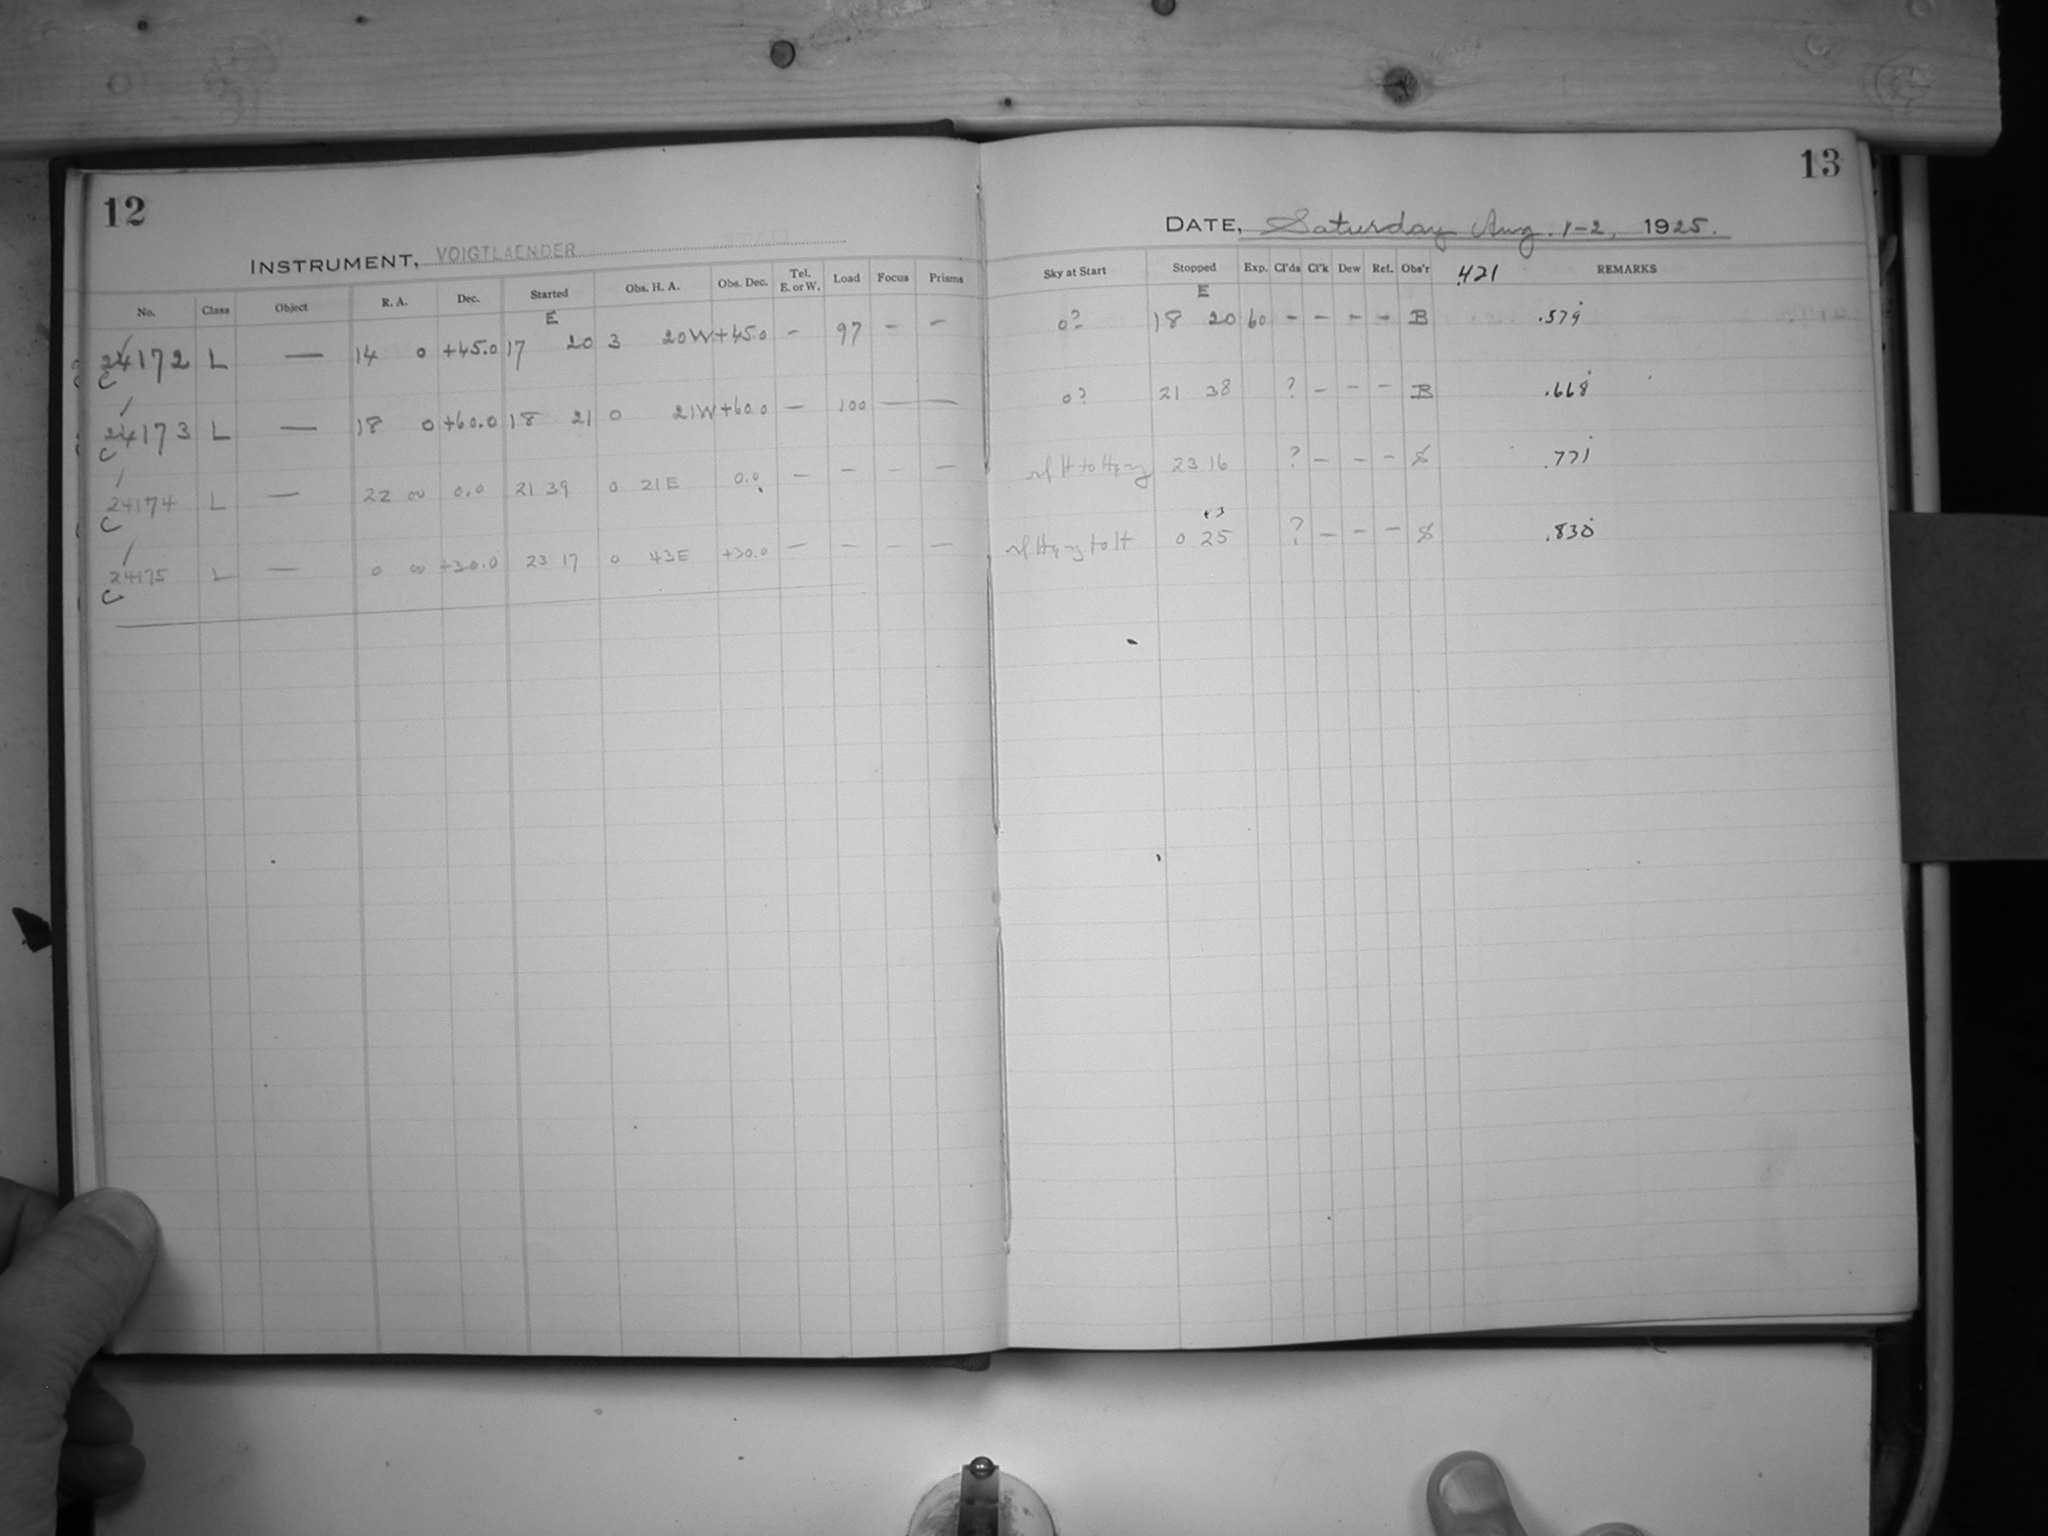 12
INSTRUMENT, VOIGTLAENDER
No. Class Object R. A. Dec. Started Obs. H. A. Obs. Dec. Tel. E. or W. Load Focus Prisms
E
24172 L — 14 0 +45.0 17 20 3 20W +45.0 – 97 – –
C
24173 L — 18 0 +60.0 18 21 0 21W +60.0 – 100 — —
C
24174 L — 22 00 0.0 21 39 0 21E 0.0 – – – –
C
24175 L — 0 00 +30.0 23 17 0 43E +30.0 – – – –
C
13
DATE, Saturday Aug. 1-2, 1925.
Sky at Start Stopped Exp. Cl'ds Cl'k Dew Ref. Obs'r .421 REMARKS
E
0? 18 20 60 – – – – B .579
0? 21 38 ? – – – B .668
H to 23 16 ? – – – .771
+3
to H 0 25 ? – – – .830